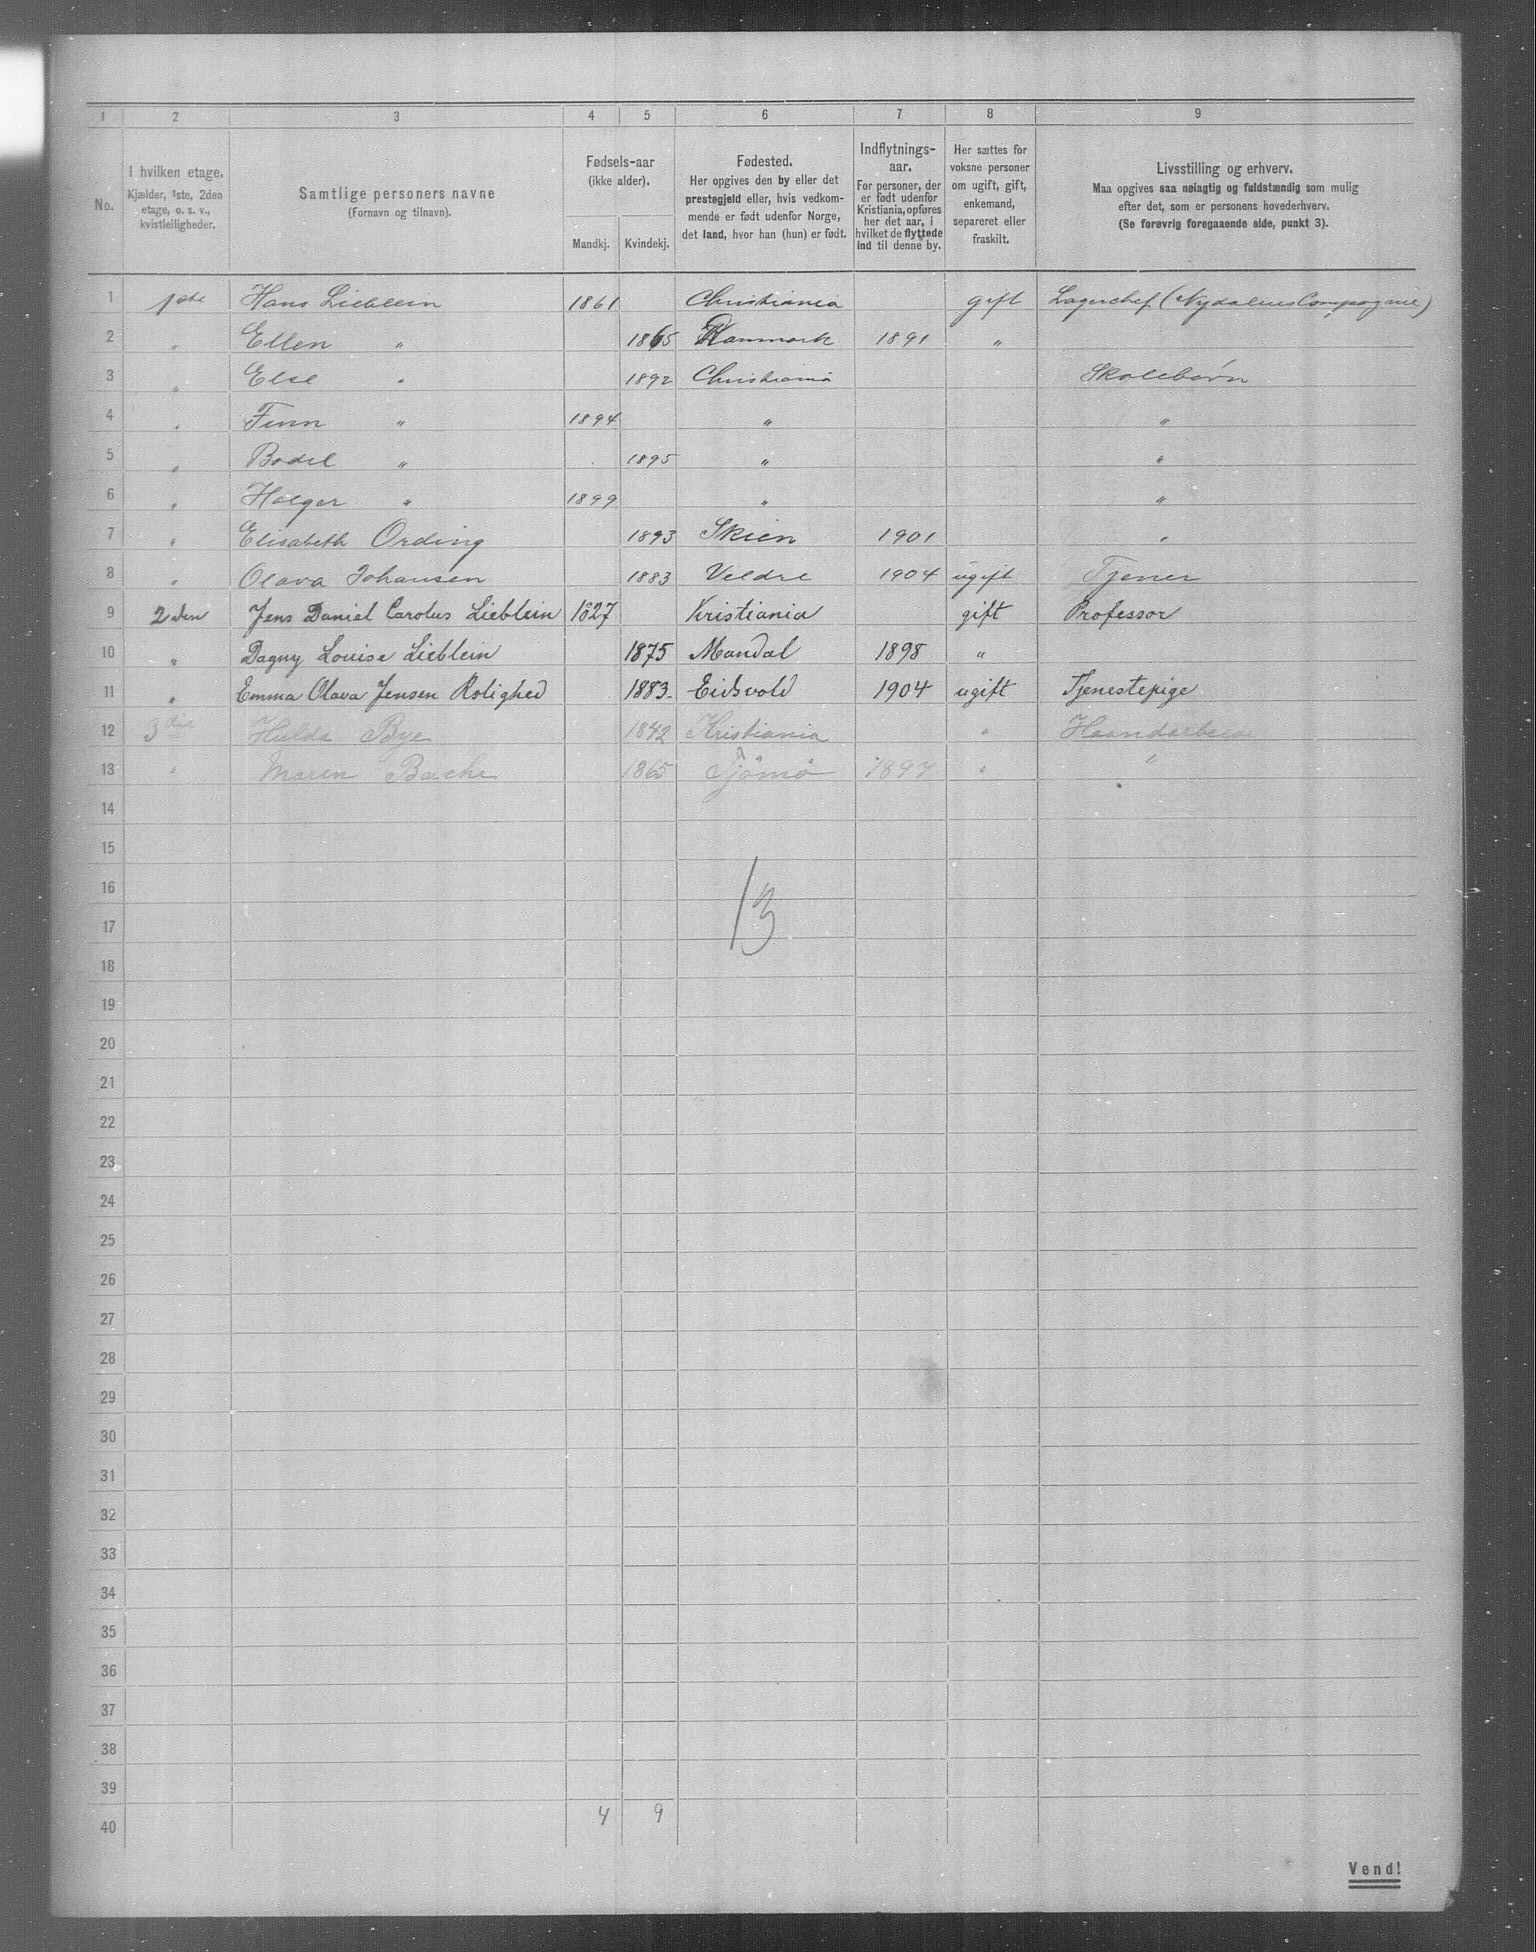 1 2 3 4 5 6 7 8 9
No.
I hvilken etage.
Kjælder, 1ste, 2den
etage, o. s. v.,
kvistleiligheder.
Samtlige personers navne
(Fornavn og tilnavn).
Fødsels-aar
(ikke alder).
Mandkj. Kvindekj.
Fødested.
Her opgives den by eller det
prestegjeld eller, hvis vedkom-
mende er født udenfor Norge,
det land, hvor han (hun) er født.
Indflytnings-
aar.
For personer, der
er født udenfor
Kristiania, opføres
her det aar, i
hvilket de flyttede
ind til denne by.
Her sættes for
voksne personer
om ugift, gift,
enkemand,
separeret eller
fraskilt.
Livsstilling og erhverv.
Maa opgives saa nøiagtig og fuldstændig som mulig
efter det, som er personens hovederhverv.
(Se forøvrig foregaaende side, punkt 3).
1 1ste Hans Lieblein 1861 Christiania gift Lagerchef (Nydalens Compagnie)
2 " Ellen " 1865 Danmark 1891 "
3 " Else " 1892 Christiania Skolebørn
4 " Finn " 1894 " "
5 " Bodil " 1895 " "
6 " Holger " 1899 " "
7 " Elisabeth Ording 1893 Skien 1901 "
8 " Olava Johansen 1883 Veldre 1904 ugift Tjener
9 2den Jens Daniel Carolus Lieblein 1827 Kristiania gift Professor
10 " Dagny Louise Lieblein 1875 Mandal 1898 "
11 " Emma Olava Jensen Rolighed 1883. Eidsvold 1904 ugift Tjenestepige
12 3die Hulda Bye 1842 Kristiania " Haandarbeide
13 " Maren Bache 1865 Tjömö 1897 " "
14
15
16
13
17
18
19
20
21
22
23
24
25
26
27
28
29
30
31
32
33
34
35
36
37
38
39
40 4 9
Vend!